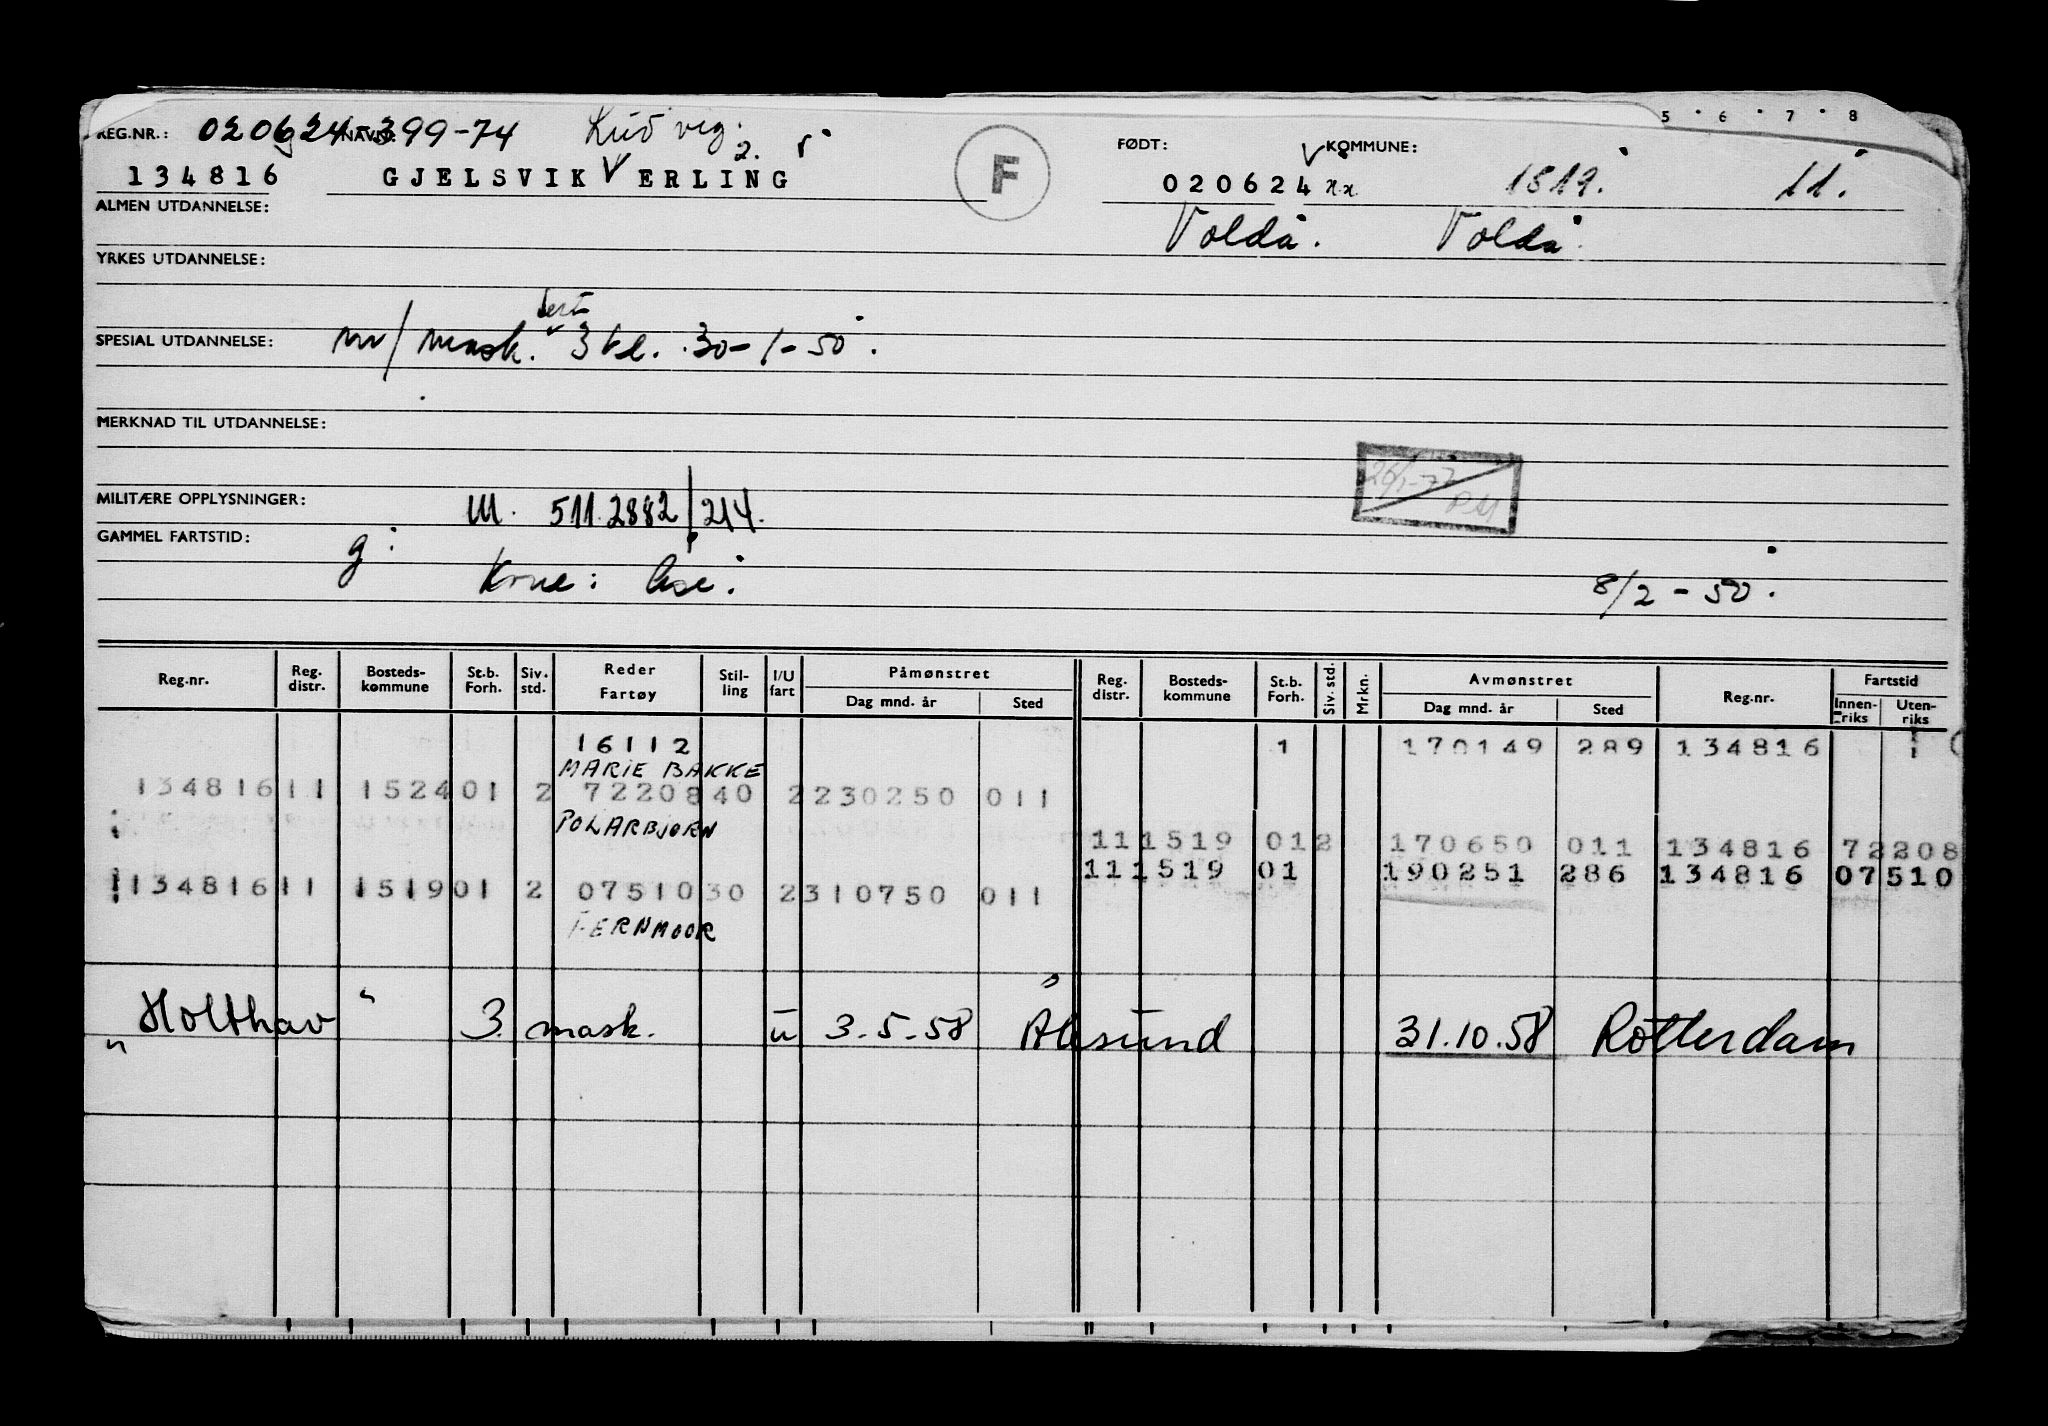 5 6 7 8
REG.NR.: 020624-399-74 NAVN:
FØDT: KOMMUNE:
134816 GJELSVIK ERLING 2. F 020624 1519. 11.
ALMEN UTDANNELSE: Volda. Volda.
YRKES UTDANNELSE:
sert
SPESIAL UTDANNELSE: mv/mask. 3 kl. 30-1-50.
MERKNAD TIL UTDANNELSE:
MILITÆRE OPPLYSNINGER: M. 511.2882/214.
GAMMEL FARTSTID: g:
Kone: Åse. 8/2-50.
Reg.nr. Reg. distr. Bosteds-kommune St.b. Forh. Siv. std. Reder Fartøy Stil-ling I/U fart Påmønstret Dag mnd. år Sted Reg. distr. Bosteds-kommune St.b. Forh. Siv. std. Mrkn. Avmønstret Dag mnd. år Sted Reg.nr. Fartstid Innen-riks Uten-riks
16112 1 170149 289 134816
MARIE BAKKE
134816 11 1524 01 2 72208 40 2 230250 011
POLARBJØRN
11 1519 01 2 170650 011 134816 72208
11 1519 01 190251 286 134816 07510
134816 11 1519 01 2 07510 30 2 310750 011
FERNMOOR
Holthav " 3. mask. u 3.5.58 Ålesund 31.10.58 Rotterdam
"